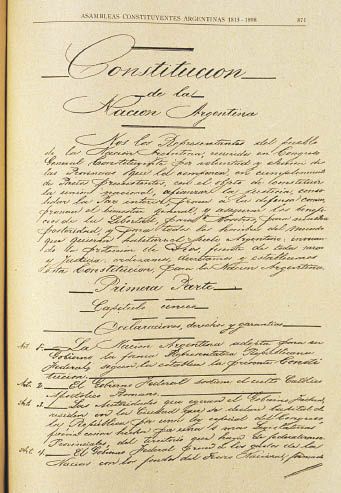 ASAMBLEAS CONSTITUYENTES ARGENTINAS 1813-1898 871
Constitucion
de la
Nacion Argentina
Nos los Representantes del pueblo
de la Nacion Argentina, reunidos en Congreso
General Constituyente por voluntad y eleccion de
las Provincias que la componen, en cumplimiento
de Pactos preexistentes, con el objeto de constituir
la union nacional, afianzar la justicia, conso
lidar la paz interior, proveer á la defensa comun,
promover el bienestar general, y asegurar los benefi
cios de la libertad, para nosotros, para nuestra
posteridad, y para todos los hombres del mundo
que quieran habitar el suelo Argentino: invocan
do la proteccion de Dios fuente de toda razon
y justicia: ordenamos, decretamos y establecemos
esta Constitucion para la Nacion Argentina.
Primera Parte
Capítulo único
Declaraciones, derechos y garantias
Art. 1º La Nacion Argentina adopta para su
Gobierno la forma Representativa Republicana
Federal, segun la establece la presente Consti
tucion.
Art. 2 El Gobierno Federal sostiene el culto Católico
Apostólico Romano.
Art. 3 Las autoridades que ejercen el Gobierno Federal,
residen en la Ciudad que se declare Capital de
la República por una ley especial del Congreso,
prévia cesion hecha por una ó mas Legislaturas
Provinciales, del territorio que haya de federalizarse.
Art. 4 El Gobierno Federal provee á los gastos de la
Nacion con los fondos del Tesoro Nacional, formado